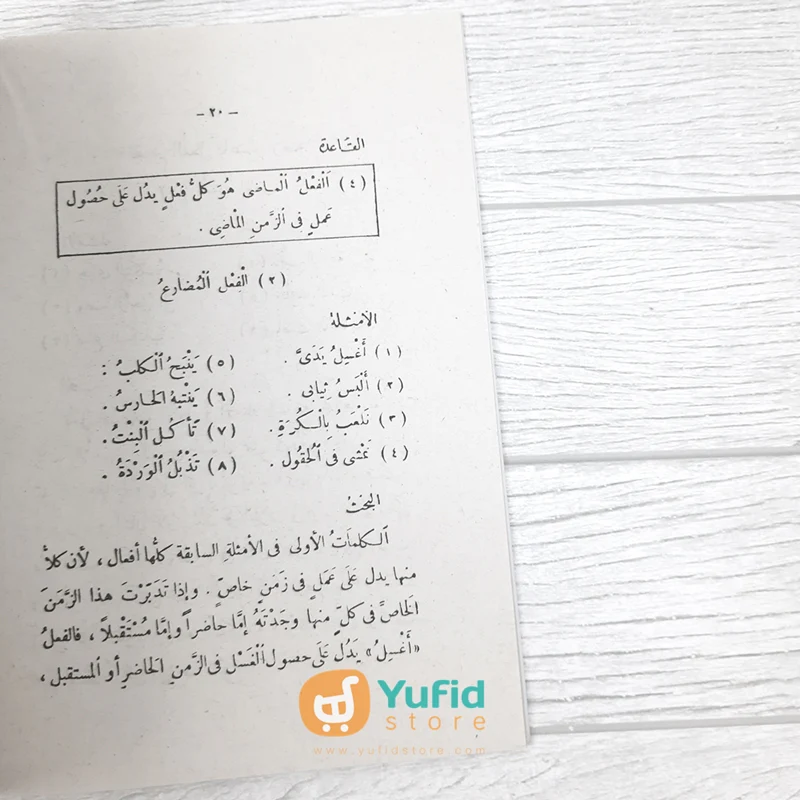 – ٢٠ –
القَاعدة
(٤) اَلْفِعْلُ اَلْمَاضى هُوَ كلُّ فِعْلٍ يدُل عَلَى حُصُول
عَملٍ فى الزَّمنِ المْاضِى .
(٢) الْفِعْل اَلْمُضَارعُ
الأمثلة
(١) أَغْسِلُ يَدَىَّ . (٥) يَنْبَحُ اَلْكلبُ :
(٢) أَلْبَسُ ثِيابى . (٦) يَنْتبهُ الحَارسُ .
(٣) نَلْعَبُ بِالْكُرَةِ . (٧) تأكُل اَلْبِنْتُ .
(٤) نَمْشى فى الْحُقُول . (٨) تَذْبُلُ اَلْوَرْدَةُ .
البحْثُ
اَلكلماتُ الأولى فى الأمثلةِ السابقة كلُّها أفعال ، لأن كلاًّ
منها يدل عَلَى عَمَلٍ فى زَمنٍ خاصٍّ . وإذا تَدَبَّرْتَ هذا الزَّمَنَ
الخاصَّ فى كلٍّ منها وجَدْتَهُ إمَّا حاضراً وإمَّا مُسْتَقْبلاً ، فالفعلُ
«أَغْسِلُ» يَدُل عَلَى حصول الْغَسْل فى الزَّمنِ الحاضرِ أو المستقبل ،
Yufid
store
www.yufidstore.com